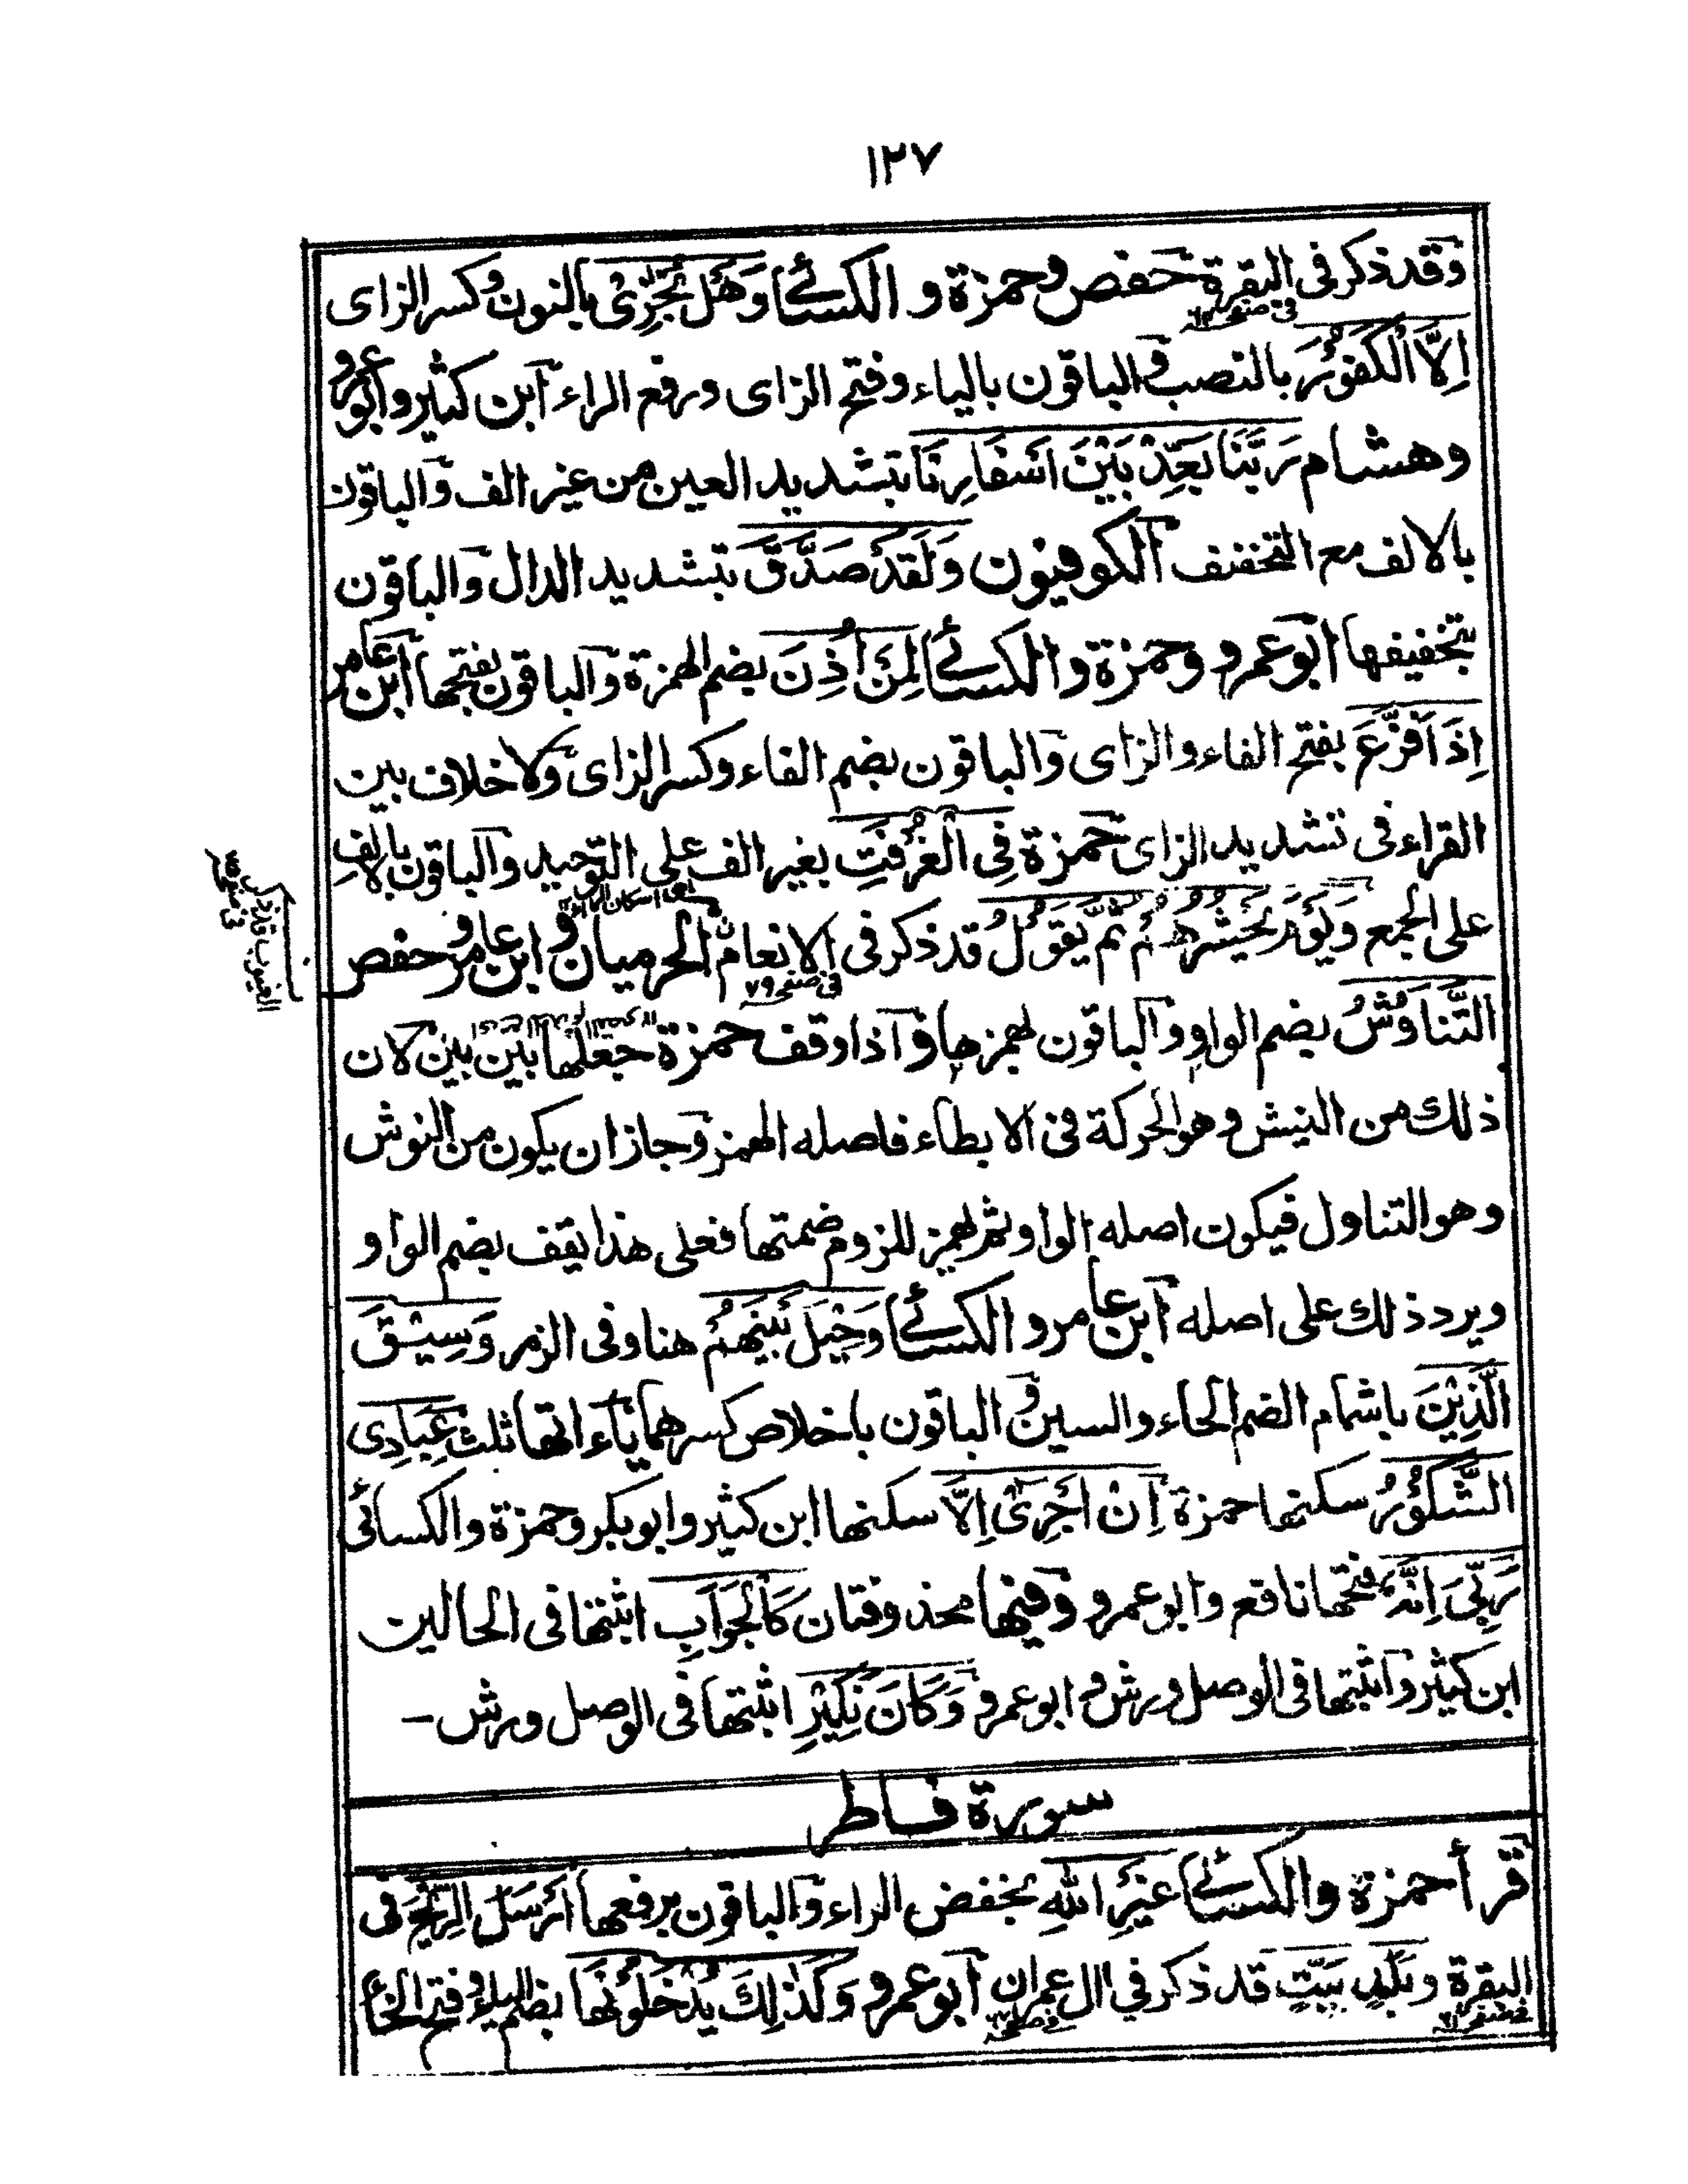 ١٢٧
وقد ذكر فى البقرة حفص وحمزة و الكسائے وَهَلْ نُجٰزِىْ بالنون وكسر الزاى
اِلَّا الْكَفُوْرَ بالنصب و الباقون بالياء وفتح الزاى ورفع الراء ابن كثير وابو عمرو
وهشام رَبَّنَا بَعِّدْ بَيْنَ اَسْفَارِنَا بتشديد العين من غير الف والباقون
بالالف مع التخفيف الكوفيون وَلَقَدْ صَدَّقَ بتشديد الدال والباقون
بتخفيفها ابو عمرو وحمزة والكسائے لِمَنْ اُذِنَ بضم الهمزة والباقون بفتحها ابن عامر
اِذَا فَزَّعَ بفتح الفاء والزاى والباقون بضم الفاء وكسر الزاى ولا خلاف بين
القراء فى تشديد الزاى حمزة فِى الْغُرْفَتِ بغير الف على التوحيد والباقون بالالف
على الجمع وَيَوْمَ يَحْشُرُهُمْ ثُمَّ يَقُوْلُ قد ذكر فى الانعام الحرميان و ابن عامر وحفص
فى صفحه ٧٩
التَّنَاوُشُ بضم الواو والباقون بهمزها و اذا وقف حمزة جعلها بين بين لان
ذلك من النيش وهو الحركة فى الابطاء فاصله الهمز وجاز ان يكون من النوش
وهو التناول فيكون اصله الواو ثم لهمز للزوم ضمتها فعلى هذا يقف بضم الواو
ويرد ذلك على اصله ابن عامر و الكسائے وَحِيْلَ بَيْنَهُمْ هنا وفى الزمر وَسِيْقَ
الَّذِيْنَ باشمام الضم الحاء والسين و الباقون باخلاص كسرهما ياءاتها ثلث عِبَادِى
الشَّكُوْرُ سكنها حمزة اِنْ اَجْرِىْ اِلَّا سكنها ابن كثير وابو بكر وحمزة والكسائى
رَبِّىَ اِنَّهٗ فتحها نافع وابو عمرو وفيها محذوفتان كَالْجَوَابِ اثبتها فى الحالين
ابن كثير و اثبتها فى الوصل ورش و ابو عمرو وَكَانَ نَكِيْرِ اثبتها فى الوصل ورش ـ
سورة فاطر
قرأ حمزة والكسائے غَيْرِ اللهِ بخفض الراء والباقون برفعها اَرْسَلَ الرِّيْحَ فى
البقرة و بَلَدٍ مَيِّتٍ قد ذكر في ال عمران ابو عمرو وَكَذٰلِكَ يُدْخَلُوْنَهَا بضم الياء و فتح الخاء